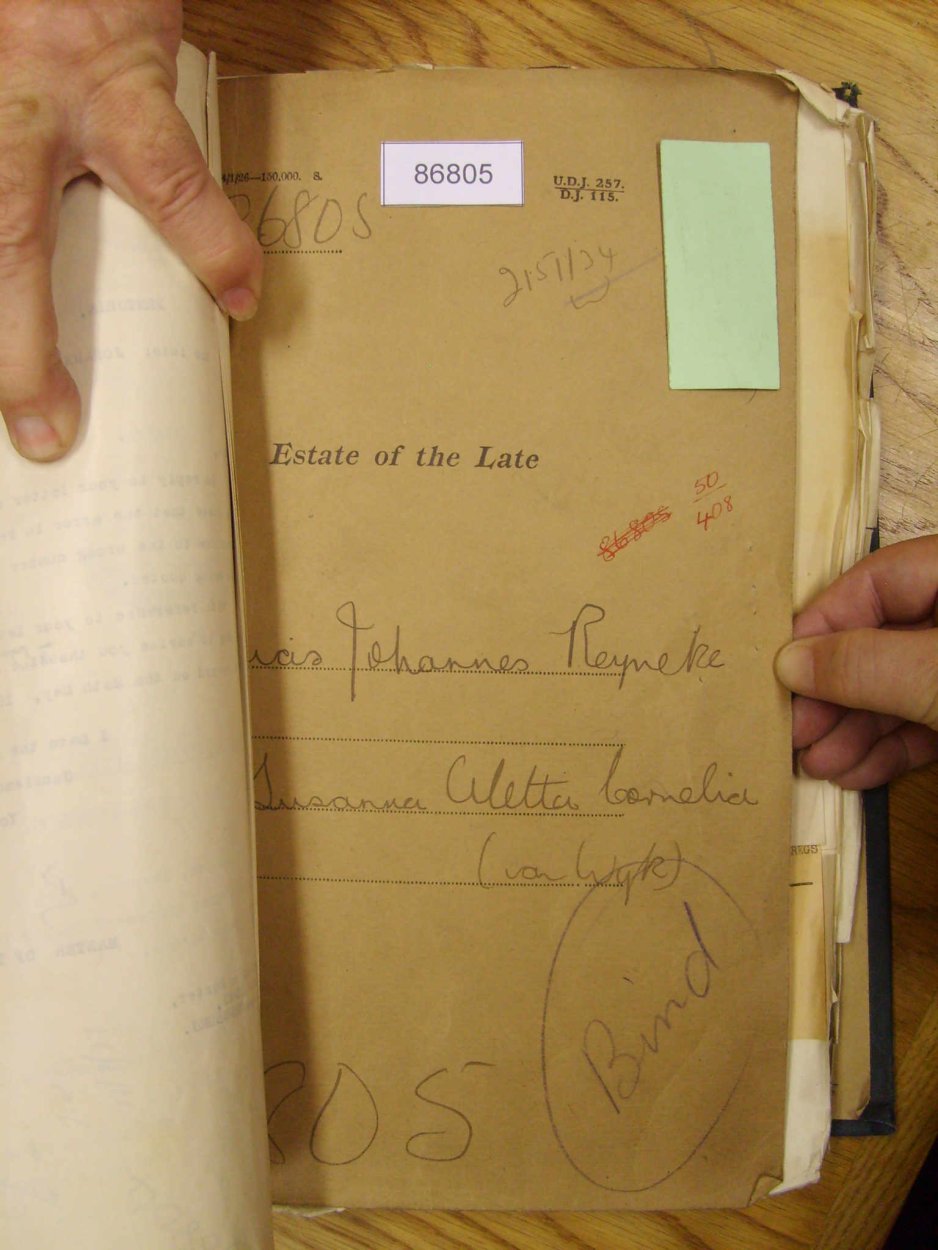 /1/26—150,000. S.
86805
U.D.J. 257.
D.J. 115.
86805
2151/34
Estate of the Late
86805
50
408
Johannes Reyneke
Susanna Aletta Cornelia
(van Wyk)
REGS
Bind
805